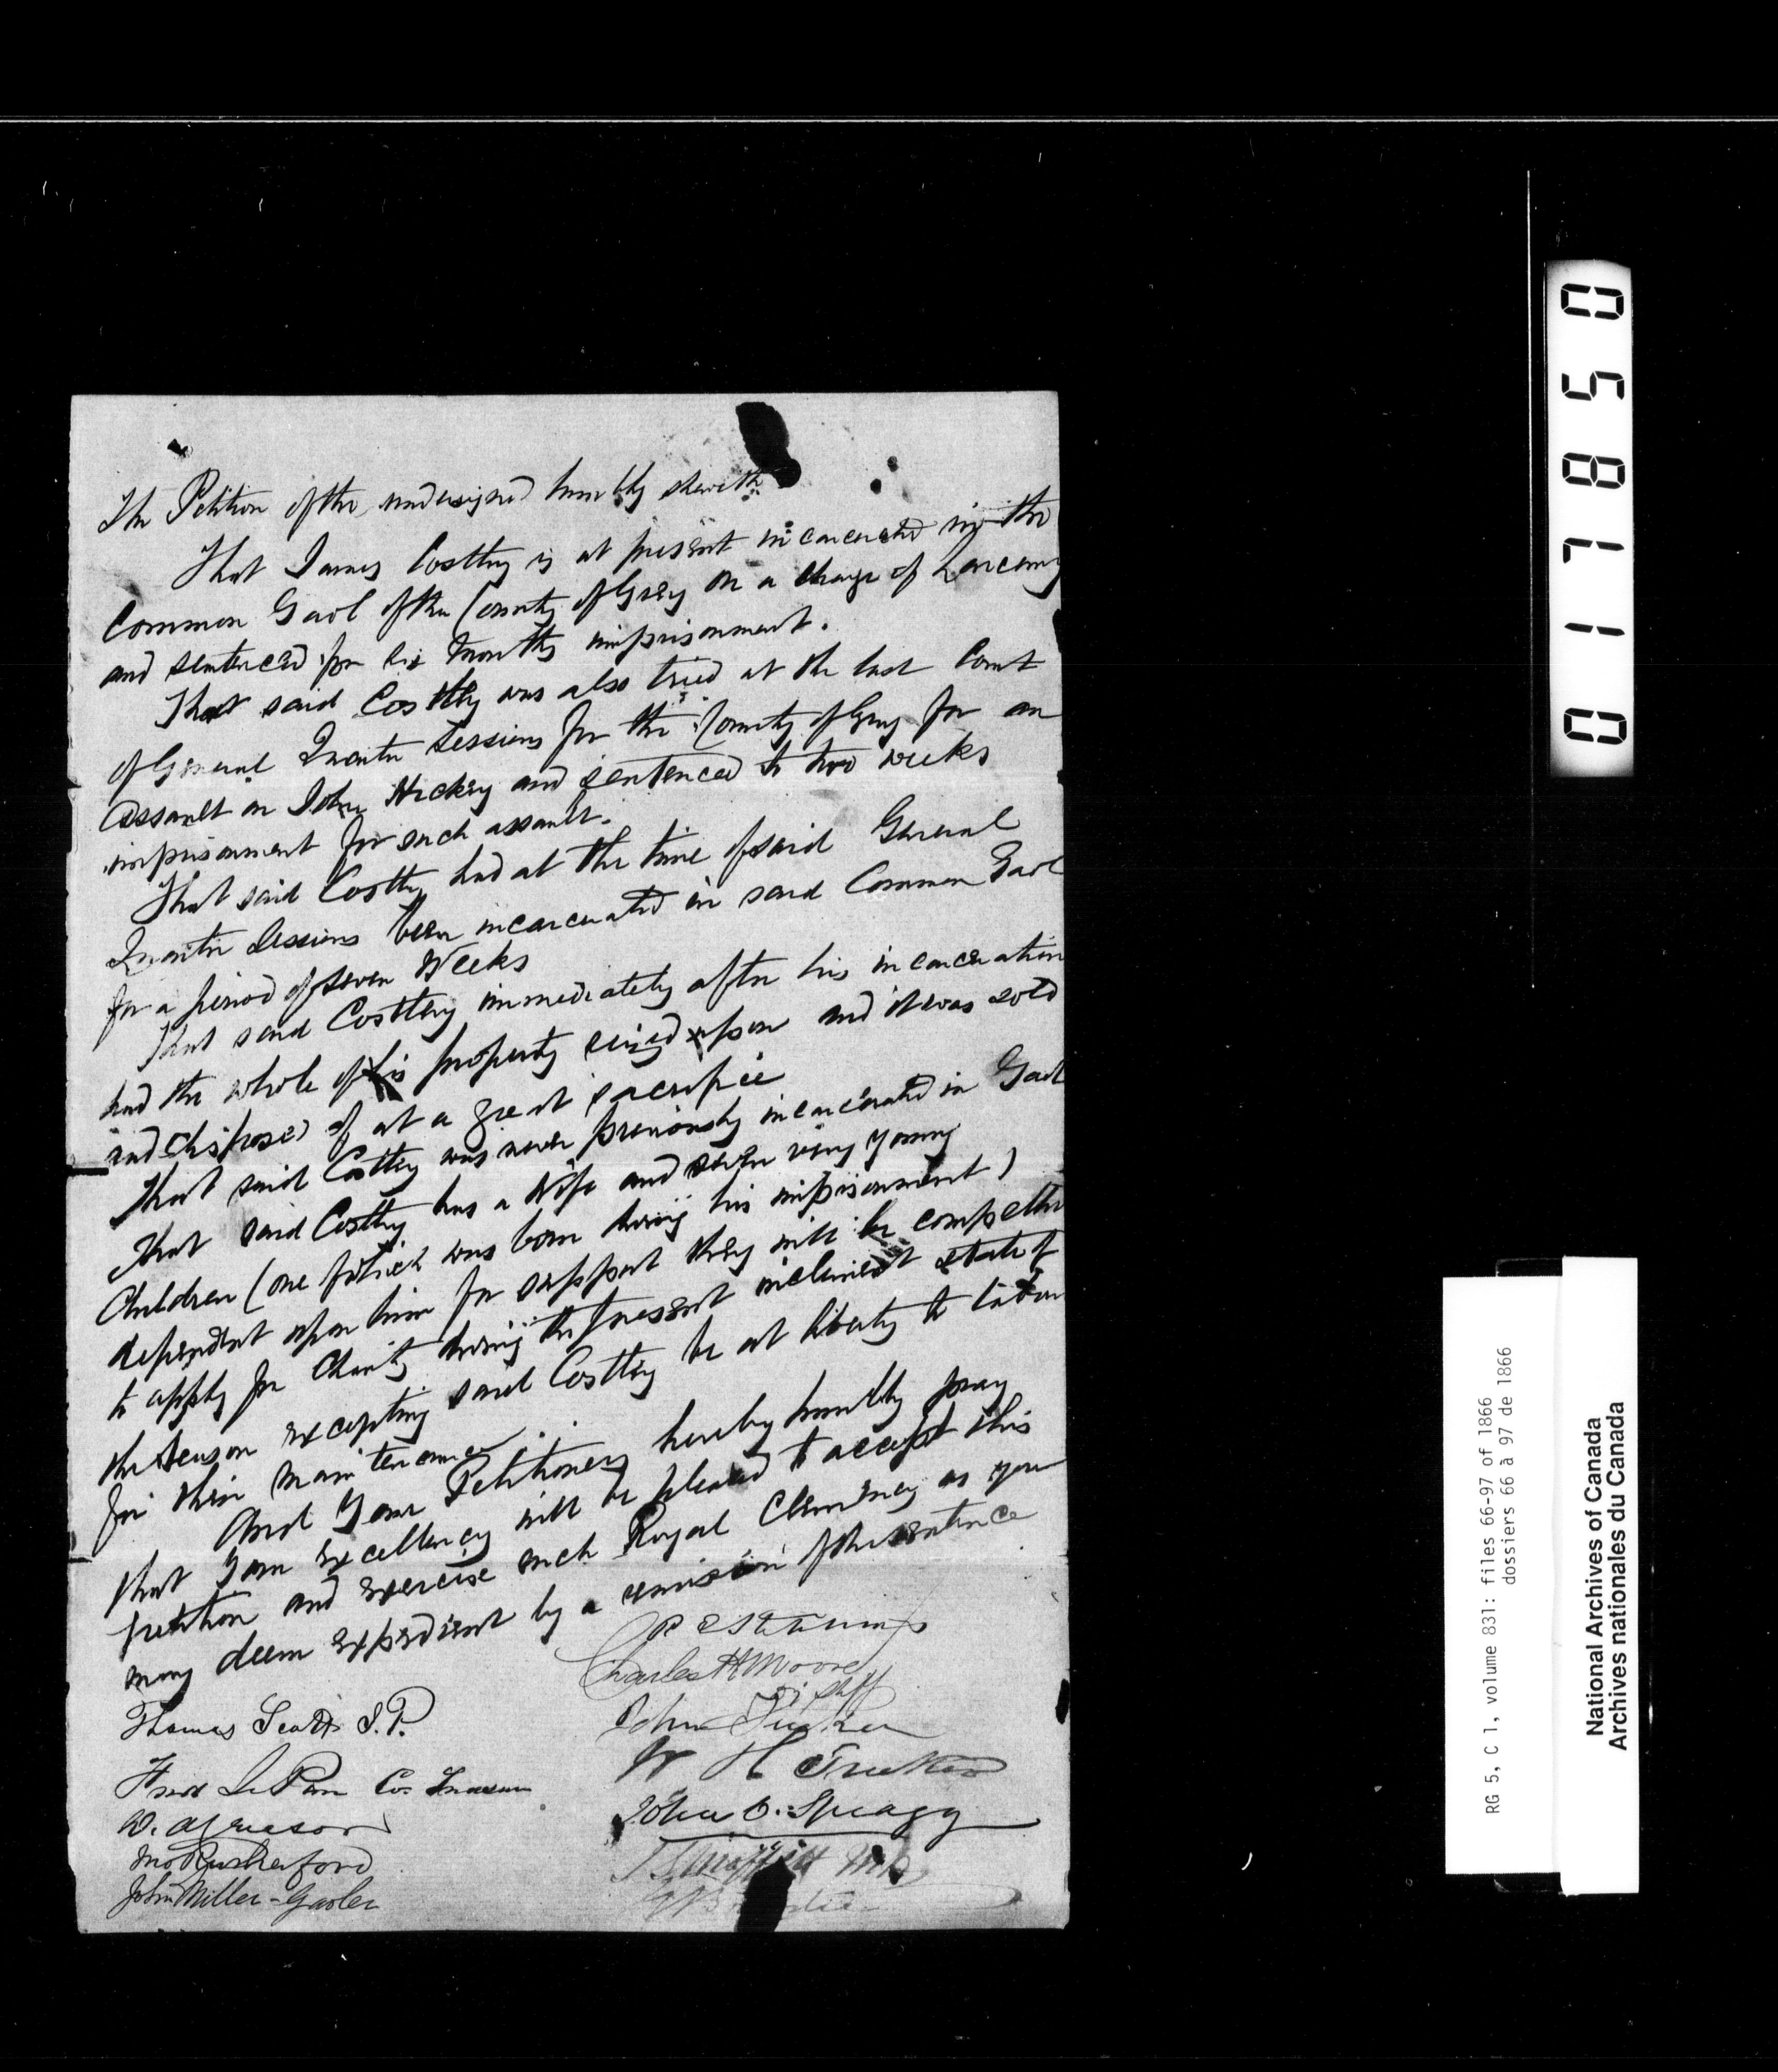 The Petition of the undersigned humbly sheweth
That James Costley is at present incarcerated in the
Common Gaol of the County of Grey on a charge of Larceny
and sentenced for six months imprisonment.
That said Costley was also tried at the last Court
of General Quarter Sessions for the County of Grey for an
assault on John Hickey and sentenced to two weeks
imprisonment for such assault.
That said Costley had at the time of said General
Quarter Sessions been incarcerated in said Common Gaol
for a period of seven Weeks
That said Costley immediately after his incarceration
had the whole of his property seized upon and it was sold
and disposed of at a great sacrifice
That said Costley was never previously incarcerated in Gaol
That said Costley has a Wife and seven very young
Children (one of which was born during his imprisonment)
dependent upon him for support they will be compelled
to apply for Charity during the present inclement state of
the season excepting said Costley be at liberty to labour
for their maintenance.
And Your Petitioners hereby humbly pray
that Your Excellency will be pleased to accept this
petition and exercise such Royal Clemency as you
may deem expedient by a remission of the sentence
Charles H Moore
John Tucker
W H Trucker
John C. Spragg
Thomas Scott J.P.
Co. Treasurer
Jno Rutherford
John Miller - Gaoler
017850
RG 5, C 1, volume 831: files 66-97 of 1866
dossiers 66 à 97 de 1866
National Archives of Canada
Archives nationales du Canada